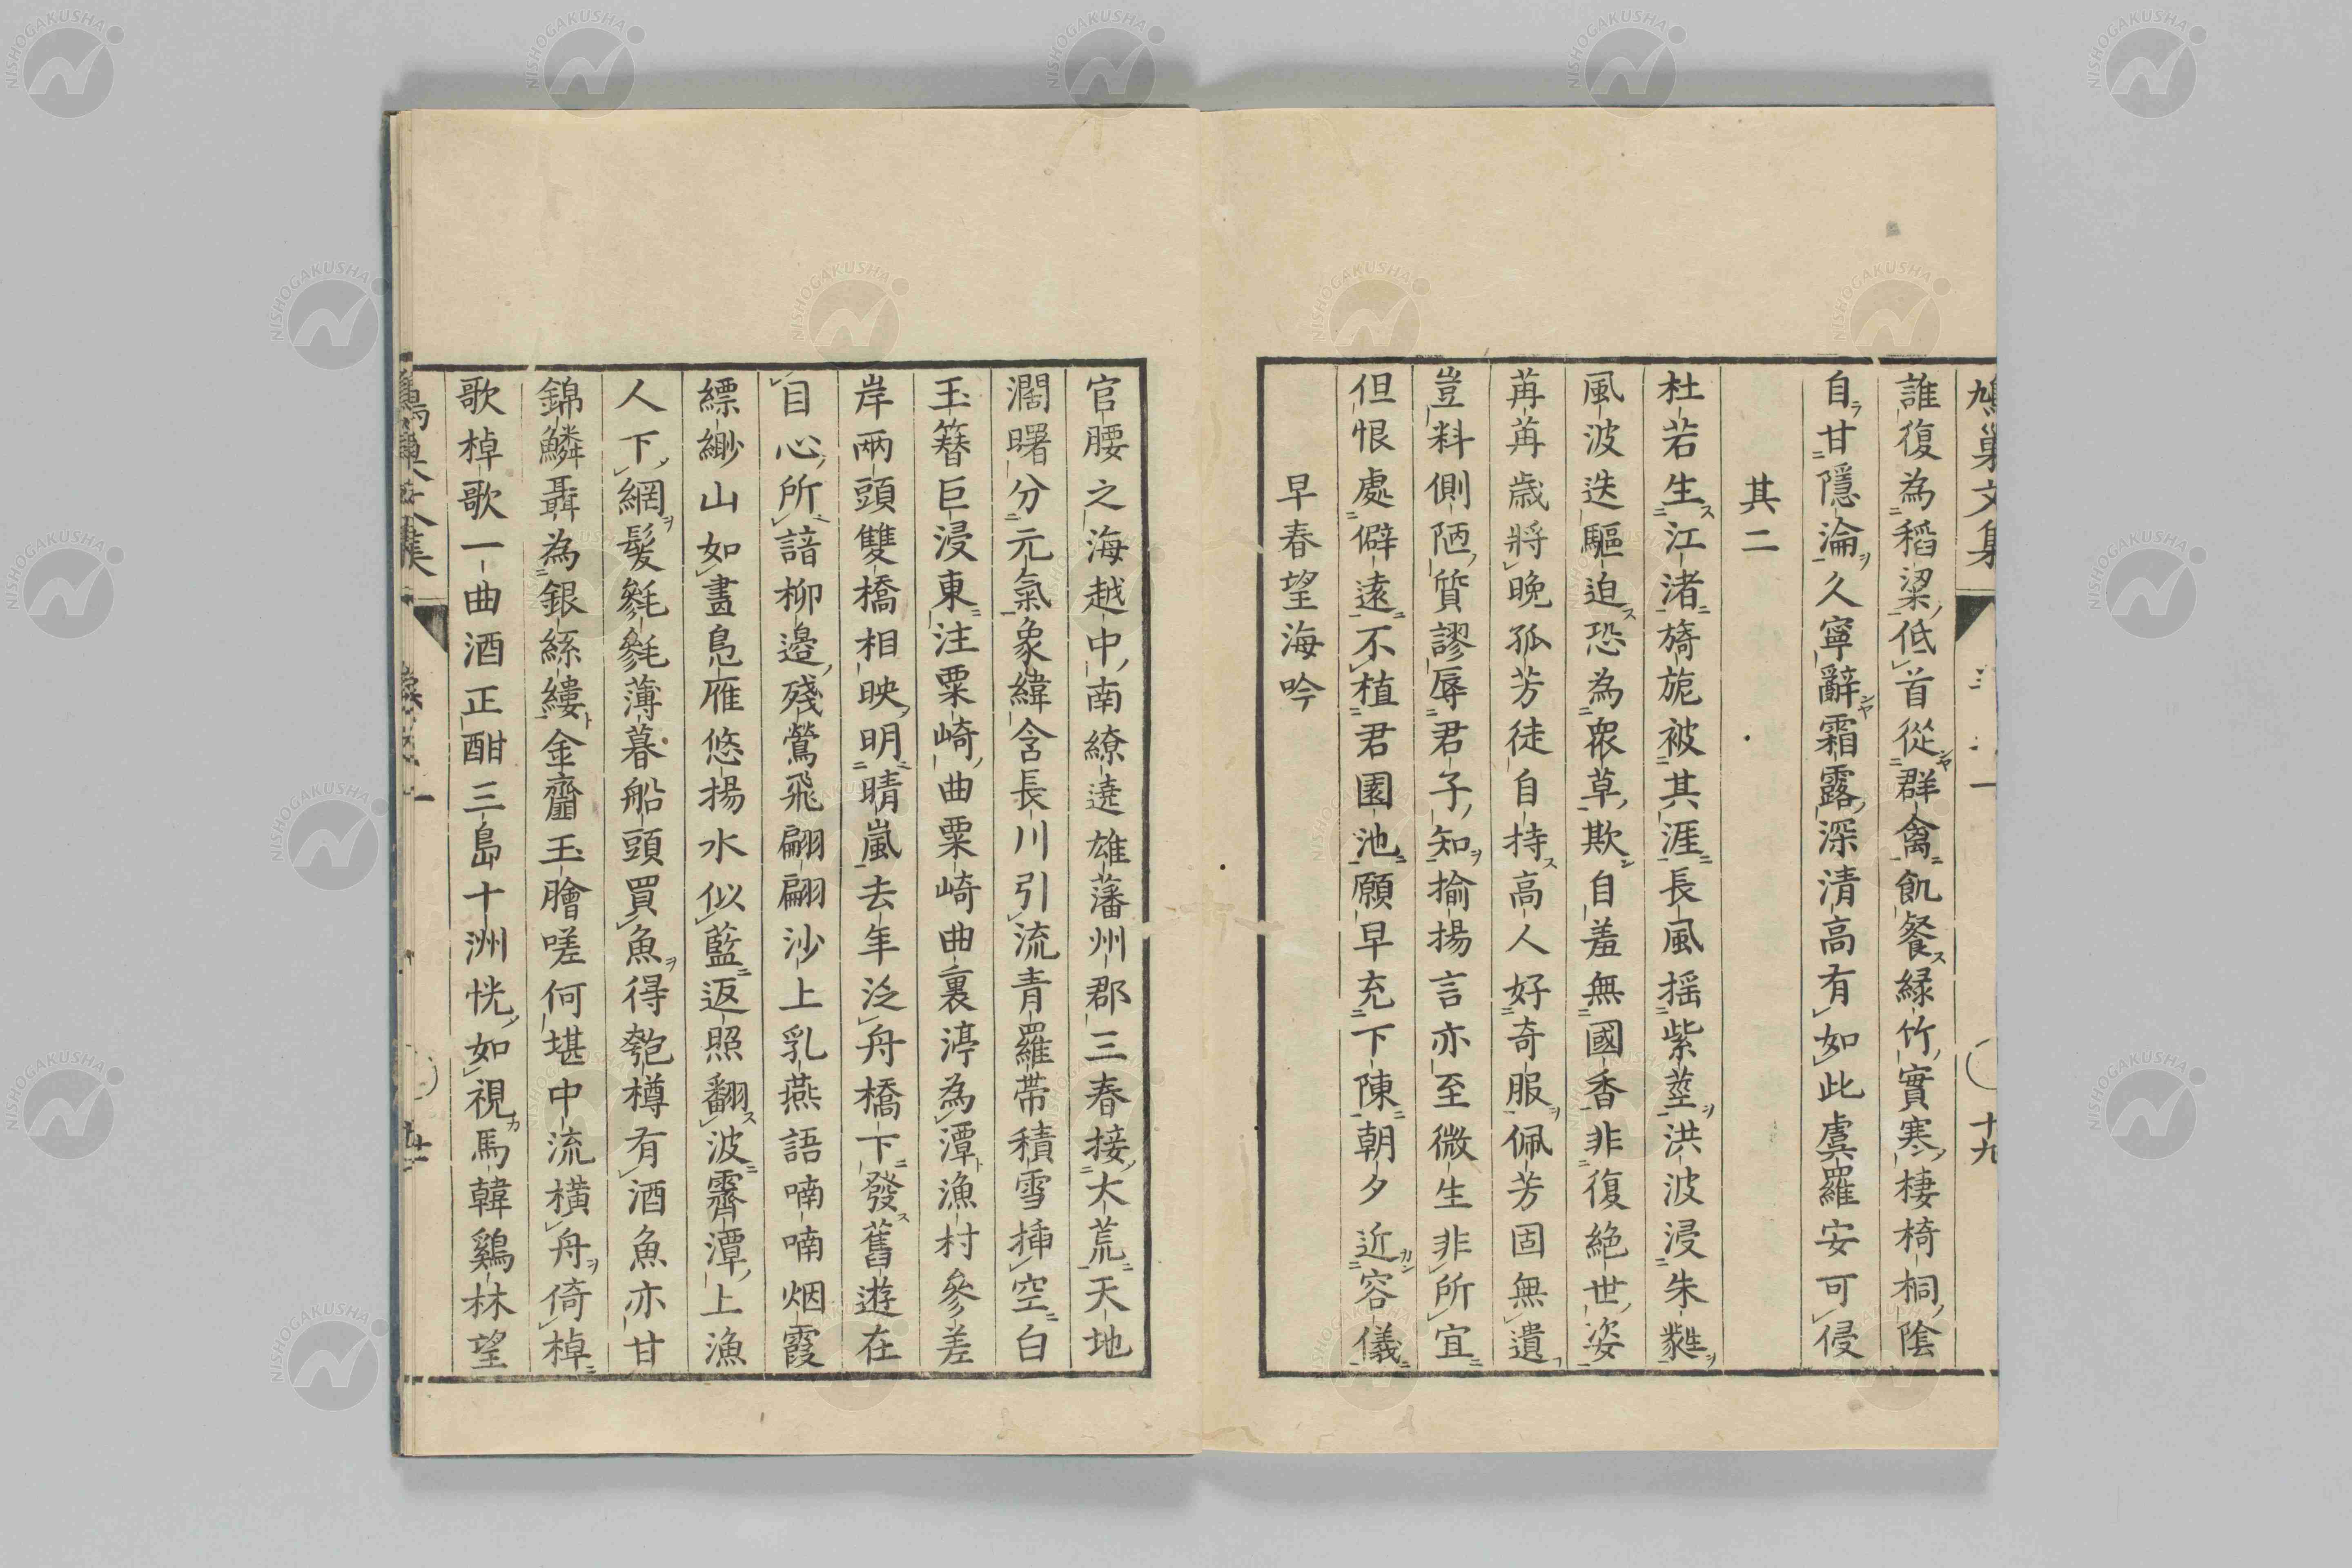 鳩巢文集
十九
誰復為稻梁低首從群禽飢餐緑竹實寒棲椅桐陰
自甘隱淪久寧辭霜露深清高有如此虞羅安可侵
其二
杜若生江渚旖旎被其涯長風揺紫莖洪波浸朱蕤
風波迭驅迫恐為衆草欺自羞無國香非復絶世姿
苒苒歳將晩孤芳徒自持高人好奇服佩芳固無遺
豈料側陋質謬辱君子知揄揚言亦至微生非所宜
但恨處僻遠不植君園池願早充下陳朝夕近容儀
早春望海吟
官腰之海越中南繚遶雄藩州郡三春接大荒天地
濶曙分元氣象緯含長川引流青羅帶積雪挿空白
玉簪巨浸東注粟崎曲粟崎曲裏渟為潭漁村參差
岸兩頭雙橋相映明晴嵐去年泛舟橋下發舊遊在
目心所諳柳邉殘鶯飛翩翩沙上乳燕語喃喃烟霞
縹緲山如畫鳧雁悠揚水似藍返照翻波霽潭上漁
人下網髪毿毿薄暮船頭買魚得匏樽有酒魚亦甘
錦鱗聶為銀絲縷金齏玉膾嗟何堪中流横舟倚棹
歌棹歌一曲酒正酣三島十洲恍如視馬韓鷄林望